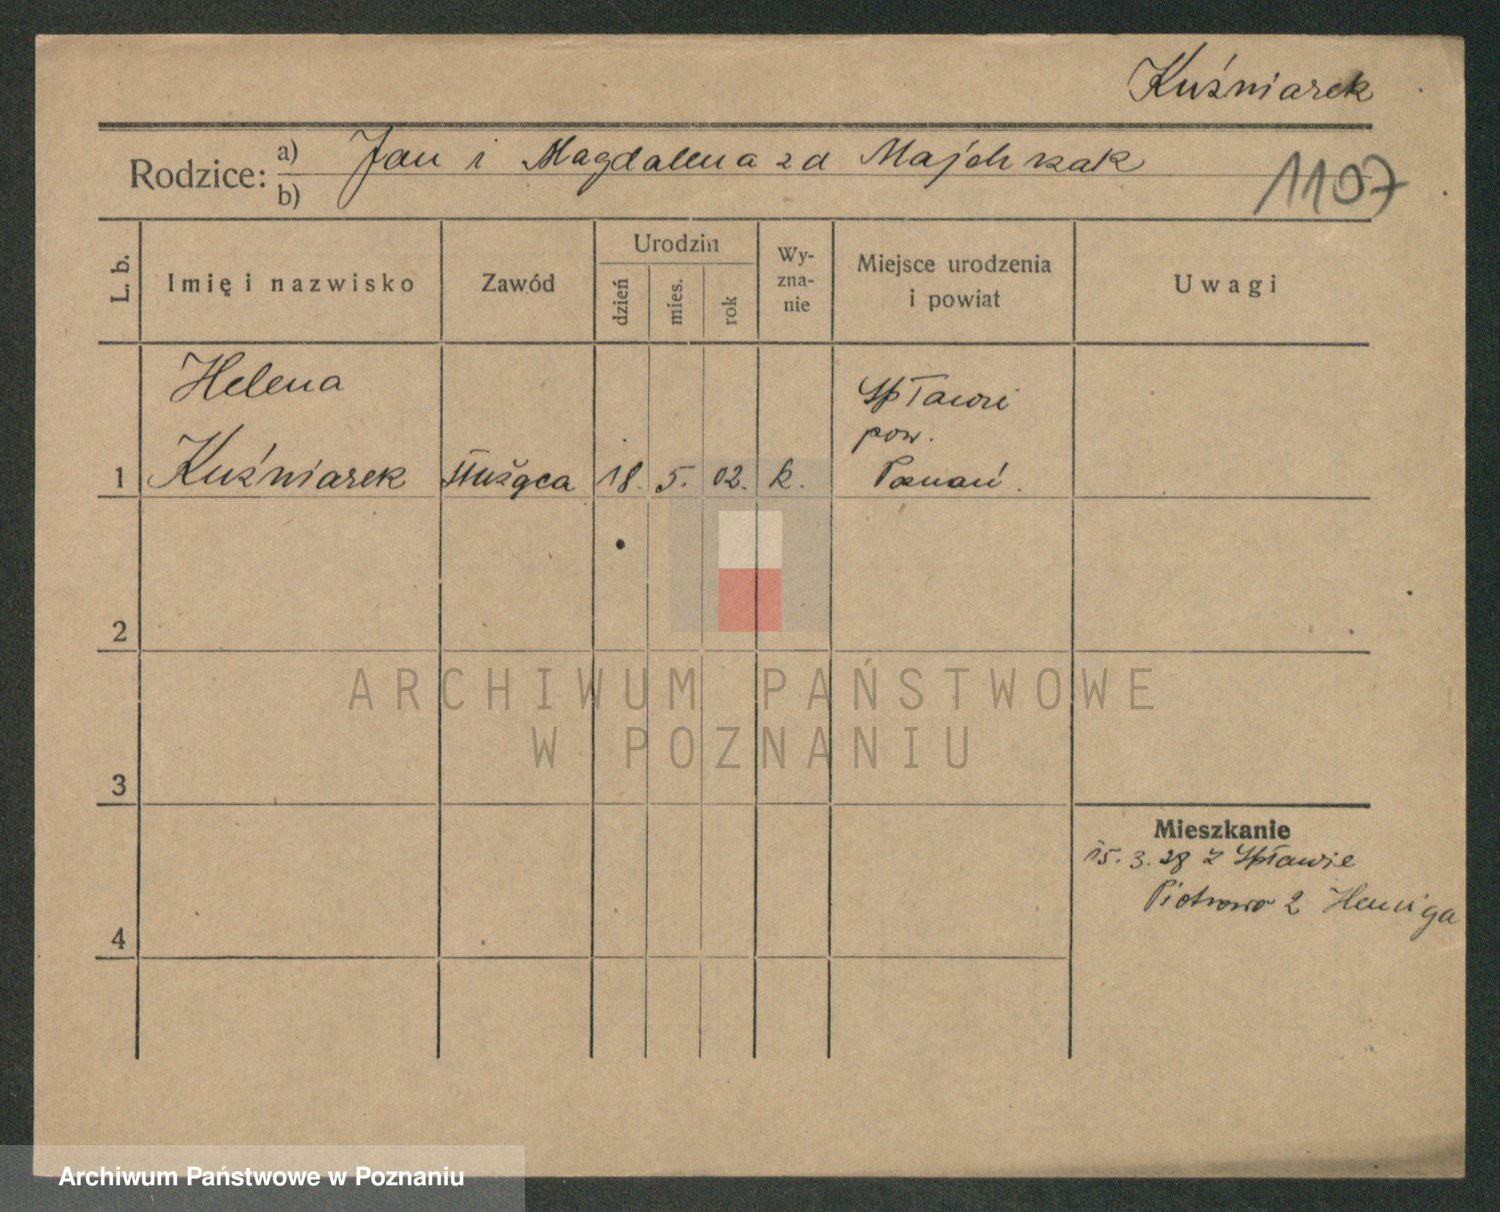 Kuźniarek
Rodzice: a) Jan i Magdalena zd Majchrzak
b)
1107
L. b.
Imię i nazwisko
Zawód
Urodzin
dzień
mies.
rok
Wy-
zna-
nie
Miejsce urodzenia
i powiat
Uwagi
Helena
Spławie
pow.
1 Kuźniarek służąca 18. 5. 02. k. Poznań.
2
ARCHIWUM PAŃSTWOWE
W POZNANIU
3
Mieszkanie
15. 3. 28 z Spławie
Piotrowo 2
4
Archiwum Państwowe w Poznaniu